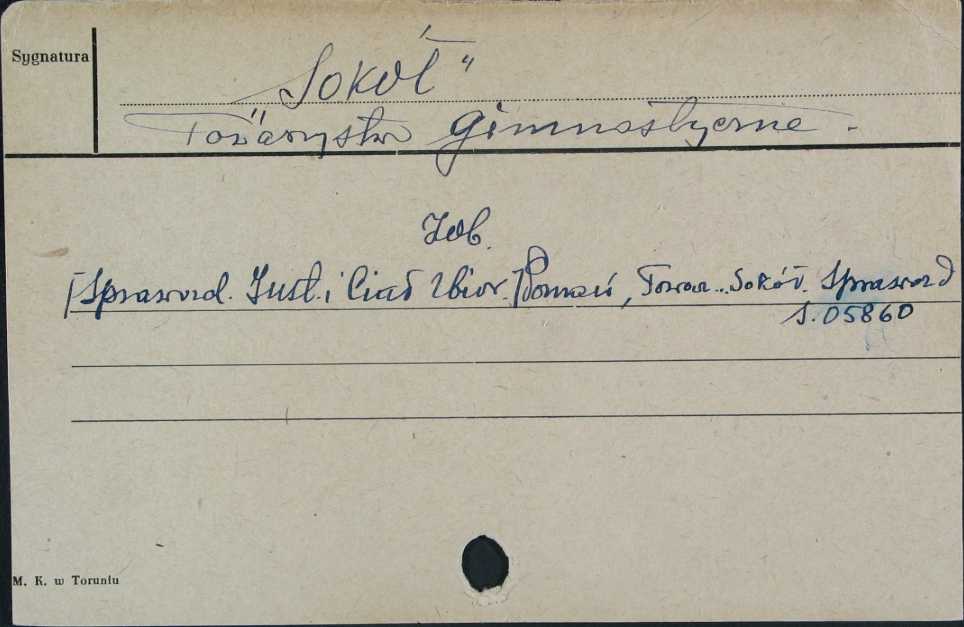 Sygnatura
"Sokół"
Towarzystwo Gimnastyczne.
Zob.
[Sprawozd. Inst. i Ciał Zbior.] Poznań, Towar. Sokół. Sprawozd
S. 05860
M. K. w Toruniu